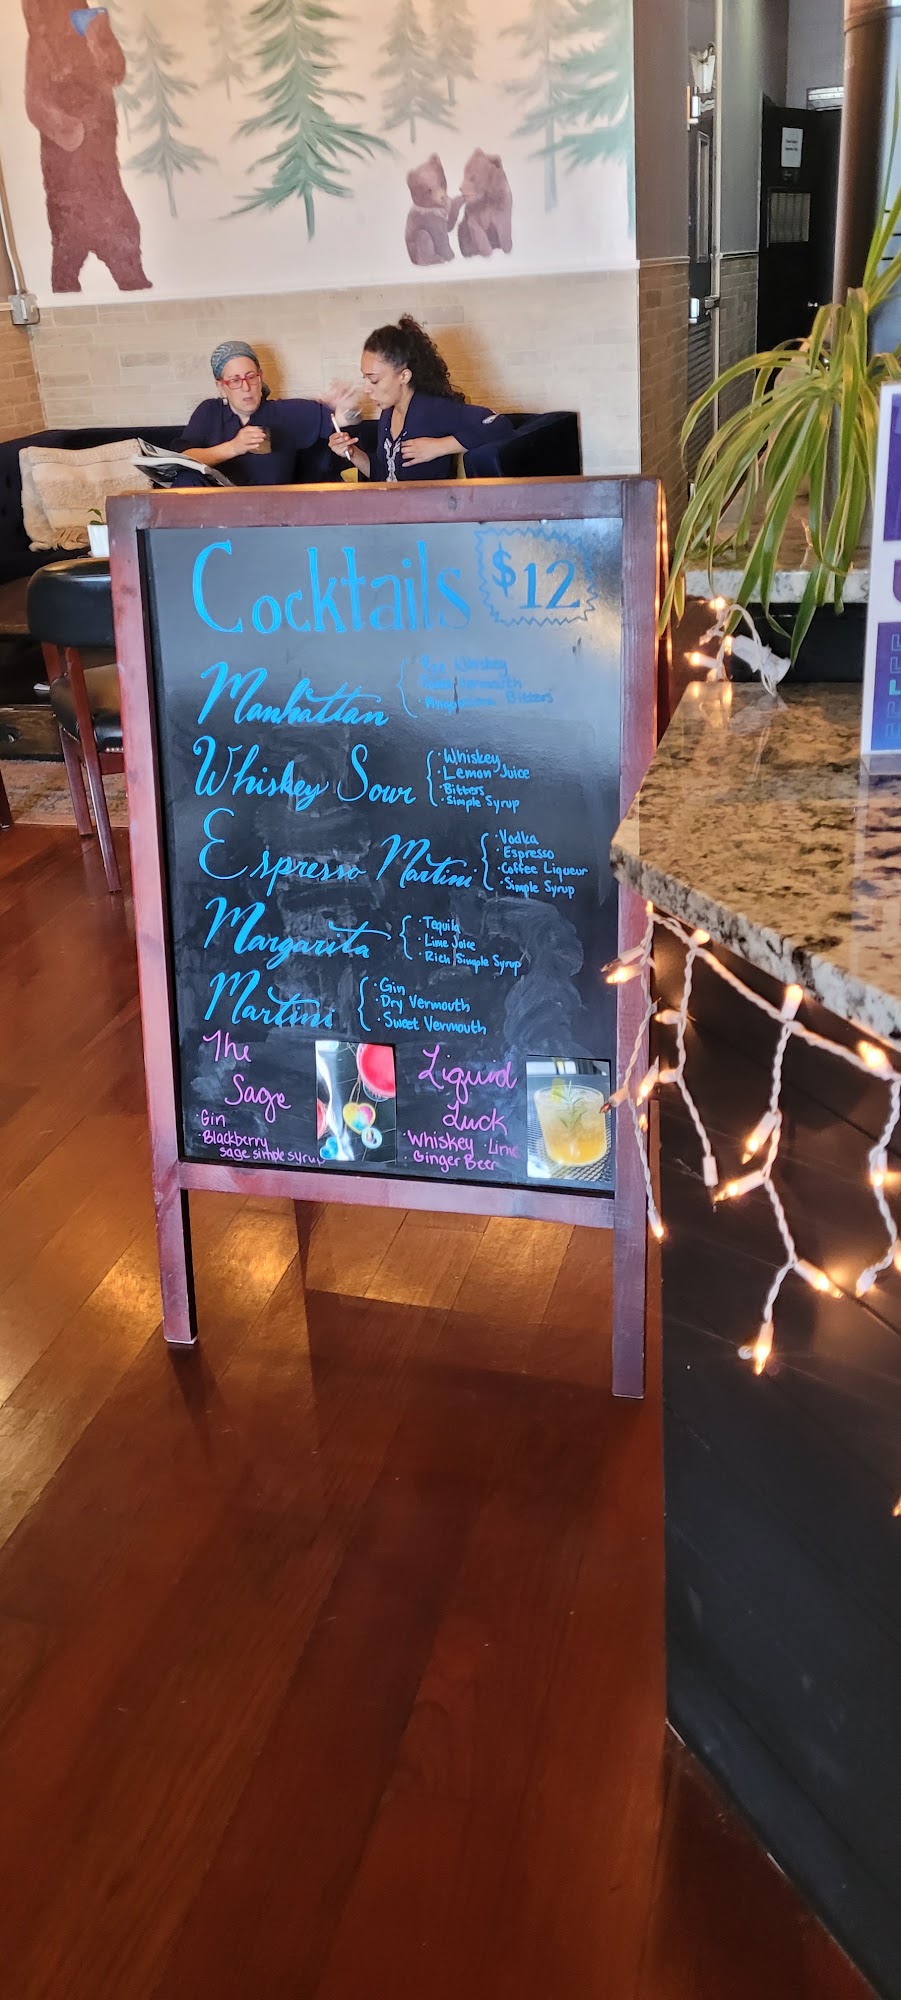 Cocktails $12
Manhattan
Rye Whiskey
Sweet Vermouth
Angostura Bitters
Whiskey Sour
· Whiskey
· Lemon Juice
· Bitters
· Simple Syrup
Espresso Martini
· Vodka
· Espresso
· Coffee Liqueur
· Simple Syrup
Margarita
· Tequila
· Lime Juice
· Rich Simple Syrup
Martini
· Gin
· Dry Vermouth
· Sweet Vermouth
The
Sage
· Gin
· Blackberry
sage simple syrup
Liquid
Luck
· Whiskey · Lime
· Ginger Beer